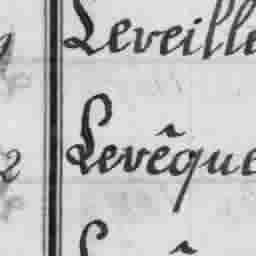 Leveille
2 Levêque